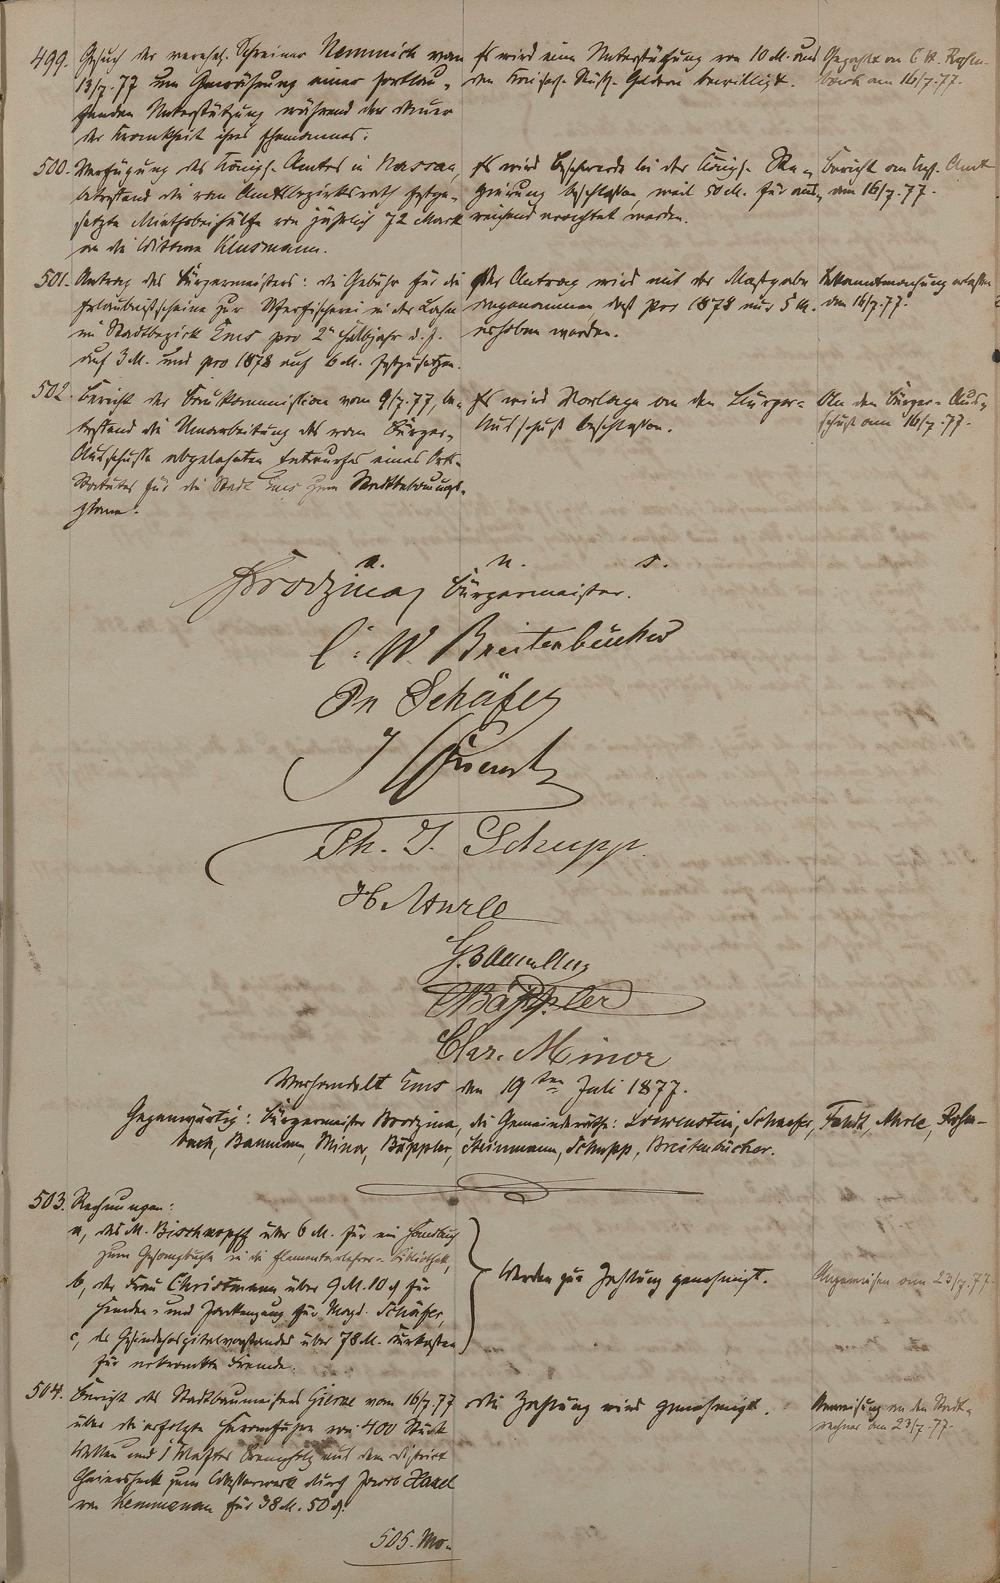 499. Gesuch der verehel. Schreiner Nemnich vom
13/7. 77 um Gewährung einer fortlau-
fenden Unterstützung während der Dauer
der Krankheit ihres Ehemannes.
Es wird eine Unterstützung von 10 M. aus
den bewilligt.
Gezahlt an C. W. Rosen-
bach am 16/7. 77.
500. Verfügung des Königl. Amtes in Nassau,
betreffend die vom Amtsbezirksrath festge-
setzte Miethsbeihülfe von jährlich 72 Mark
an die Wittwe Klusmann.
Es wird Beschwerde bei der Königl. Re-
gierung beschlossen, weil 50 M. für aus-
reichend erachtet werden.
Bericht an Kgl. Amt
am 16/7. 77.
501. Antrag des Bürgermeisters: die Gebühr für die
Erlaubnißscheine zur Uferfischerei in der Lahn
im Stadtbezirk Ems pro 2tes Halbjahr d. J.
auf 3 M. und pro 1878 auf 6 M. festzusetzen.
Der Antrag wird mit der Maßgabe
angenommen daß pro 1878 nur 5 M.
erhoben werden.
Bekanntmachung erlassen
den 16/7. 77.
502. Bericht der Baukommission vom 9/7. 77, be-
treffend die Umarbeitung des vom Bürger-
Ausschusse abgelehnten Entwurfes eines Orts-
Statutes für die Stadt Ems zum Stadtbebauungs-
plane.
Es wird Vorlage an den Bürger-
Ausschuß beschlossen.
An den Bürger-Aus-
schuß am 16/7. 77.
a. u. s.
Brodzina, Bürgermeister.
C. W. Breitenbücher
Ph. Schäfer
Ph. J. Schupp
H. Aurle
G. Baumann
Bäppler
Chr. Minor
Verhandelt Ems den 19ten Juli 1877.
Gegenwärtig: Bürgermeister Brodzina, die Gemeinderäthe: Loewenstein, Schaefer, Fendt, Aurle, Rosen-
bach, Baumann, Minor, Bäppler, Steinmann, Schupp, Breitenbücher.
503. Rechnungen:
a, des M. Bischkopff über 6 M. für ein Handbuch
zum Gesangbuche in die Elementarlehrer-Bibliothek,
b, der Frau Christmann über 9 M. 10 d für
Hemden- und für Magd. Schäfer,
c, des Gesindehospitalvorstandes über 78 M. Kurkosten
für erkrankte Fremde.
Werden zur Zahlung genehmigt.
Angewiesen am 23/7. 77.
504. Bericht des Stadtbaumeisters vom 16/7. 77
über die erfolgte von 400 Stück
Wellen und 1 Klafter aus dem Distrikt
zum Wasserwerk durch Jacob Hasel
von Kemmenau für 38 M. 50 d.
Die Zahlung wird genehmigt.
Anweisung an den Stadt-
rechner am 23/7. 77.
505. Mo-